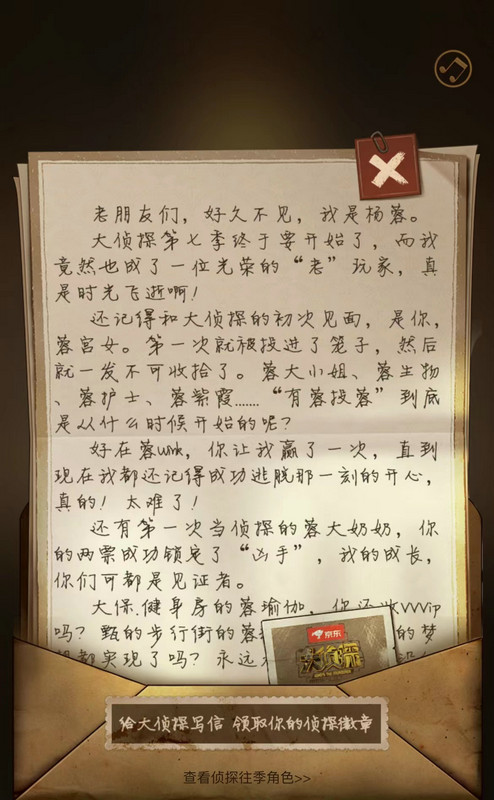 老朋友们，好久不见，我是杨蓉。
大侦探第七季终于要开始了，而我
竟然也成了一位光荣的“老”玩家，真
是时光飞逝啊！
还记得和大侦探的初次见面，是你，
蓉宫女。第一次就被投进了笼子，然后
就一发不可收拾了。蓉大小姐、蓉生物
、蓉护士、蓉紫霞……“有蓉投蓉”到底
是从什么时候开始的呢？
好在蓉wink，你让我赢了一次，直到
现在我都还记得成功逃脱那一刻的开心，
真的！太难了！
还有第一次当侦探的蓉大奶奶，你
的两票成功锁定了“凶手”，我的成长，
你们可都是见证者。
大保.健身房的蓉瑜伽，你还收vvvip
吗？甄的步行街的蓉 的梦
都实现了吗？永远
京东
大侦探
给大侦探写信 领取你的侦探徽章
查看侦探往季角色>>